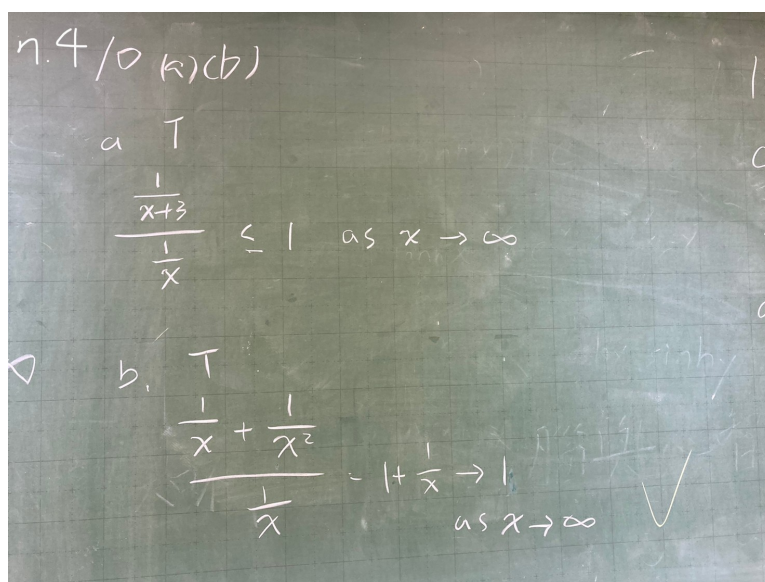 n.4 10 (a)(b)
a T
\frac{\frac{1}{x+3}}{\frac{1}{x}} ≤ 1 as x → ∞
b. T
\frac{\frac{1}{x} + \frac{1}{x^2}}{\frac{1}{x}} = 1 + \frac{1}{x} → 1
as x → ∞